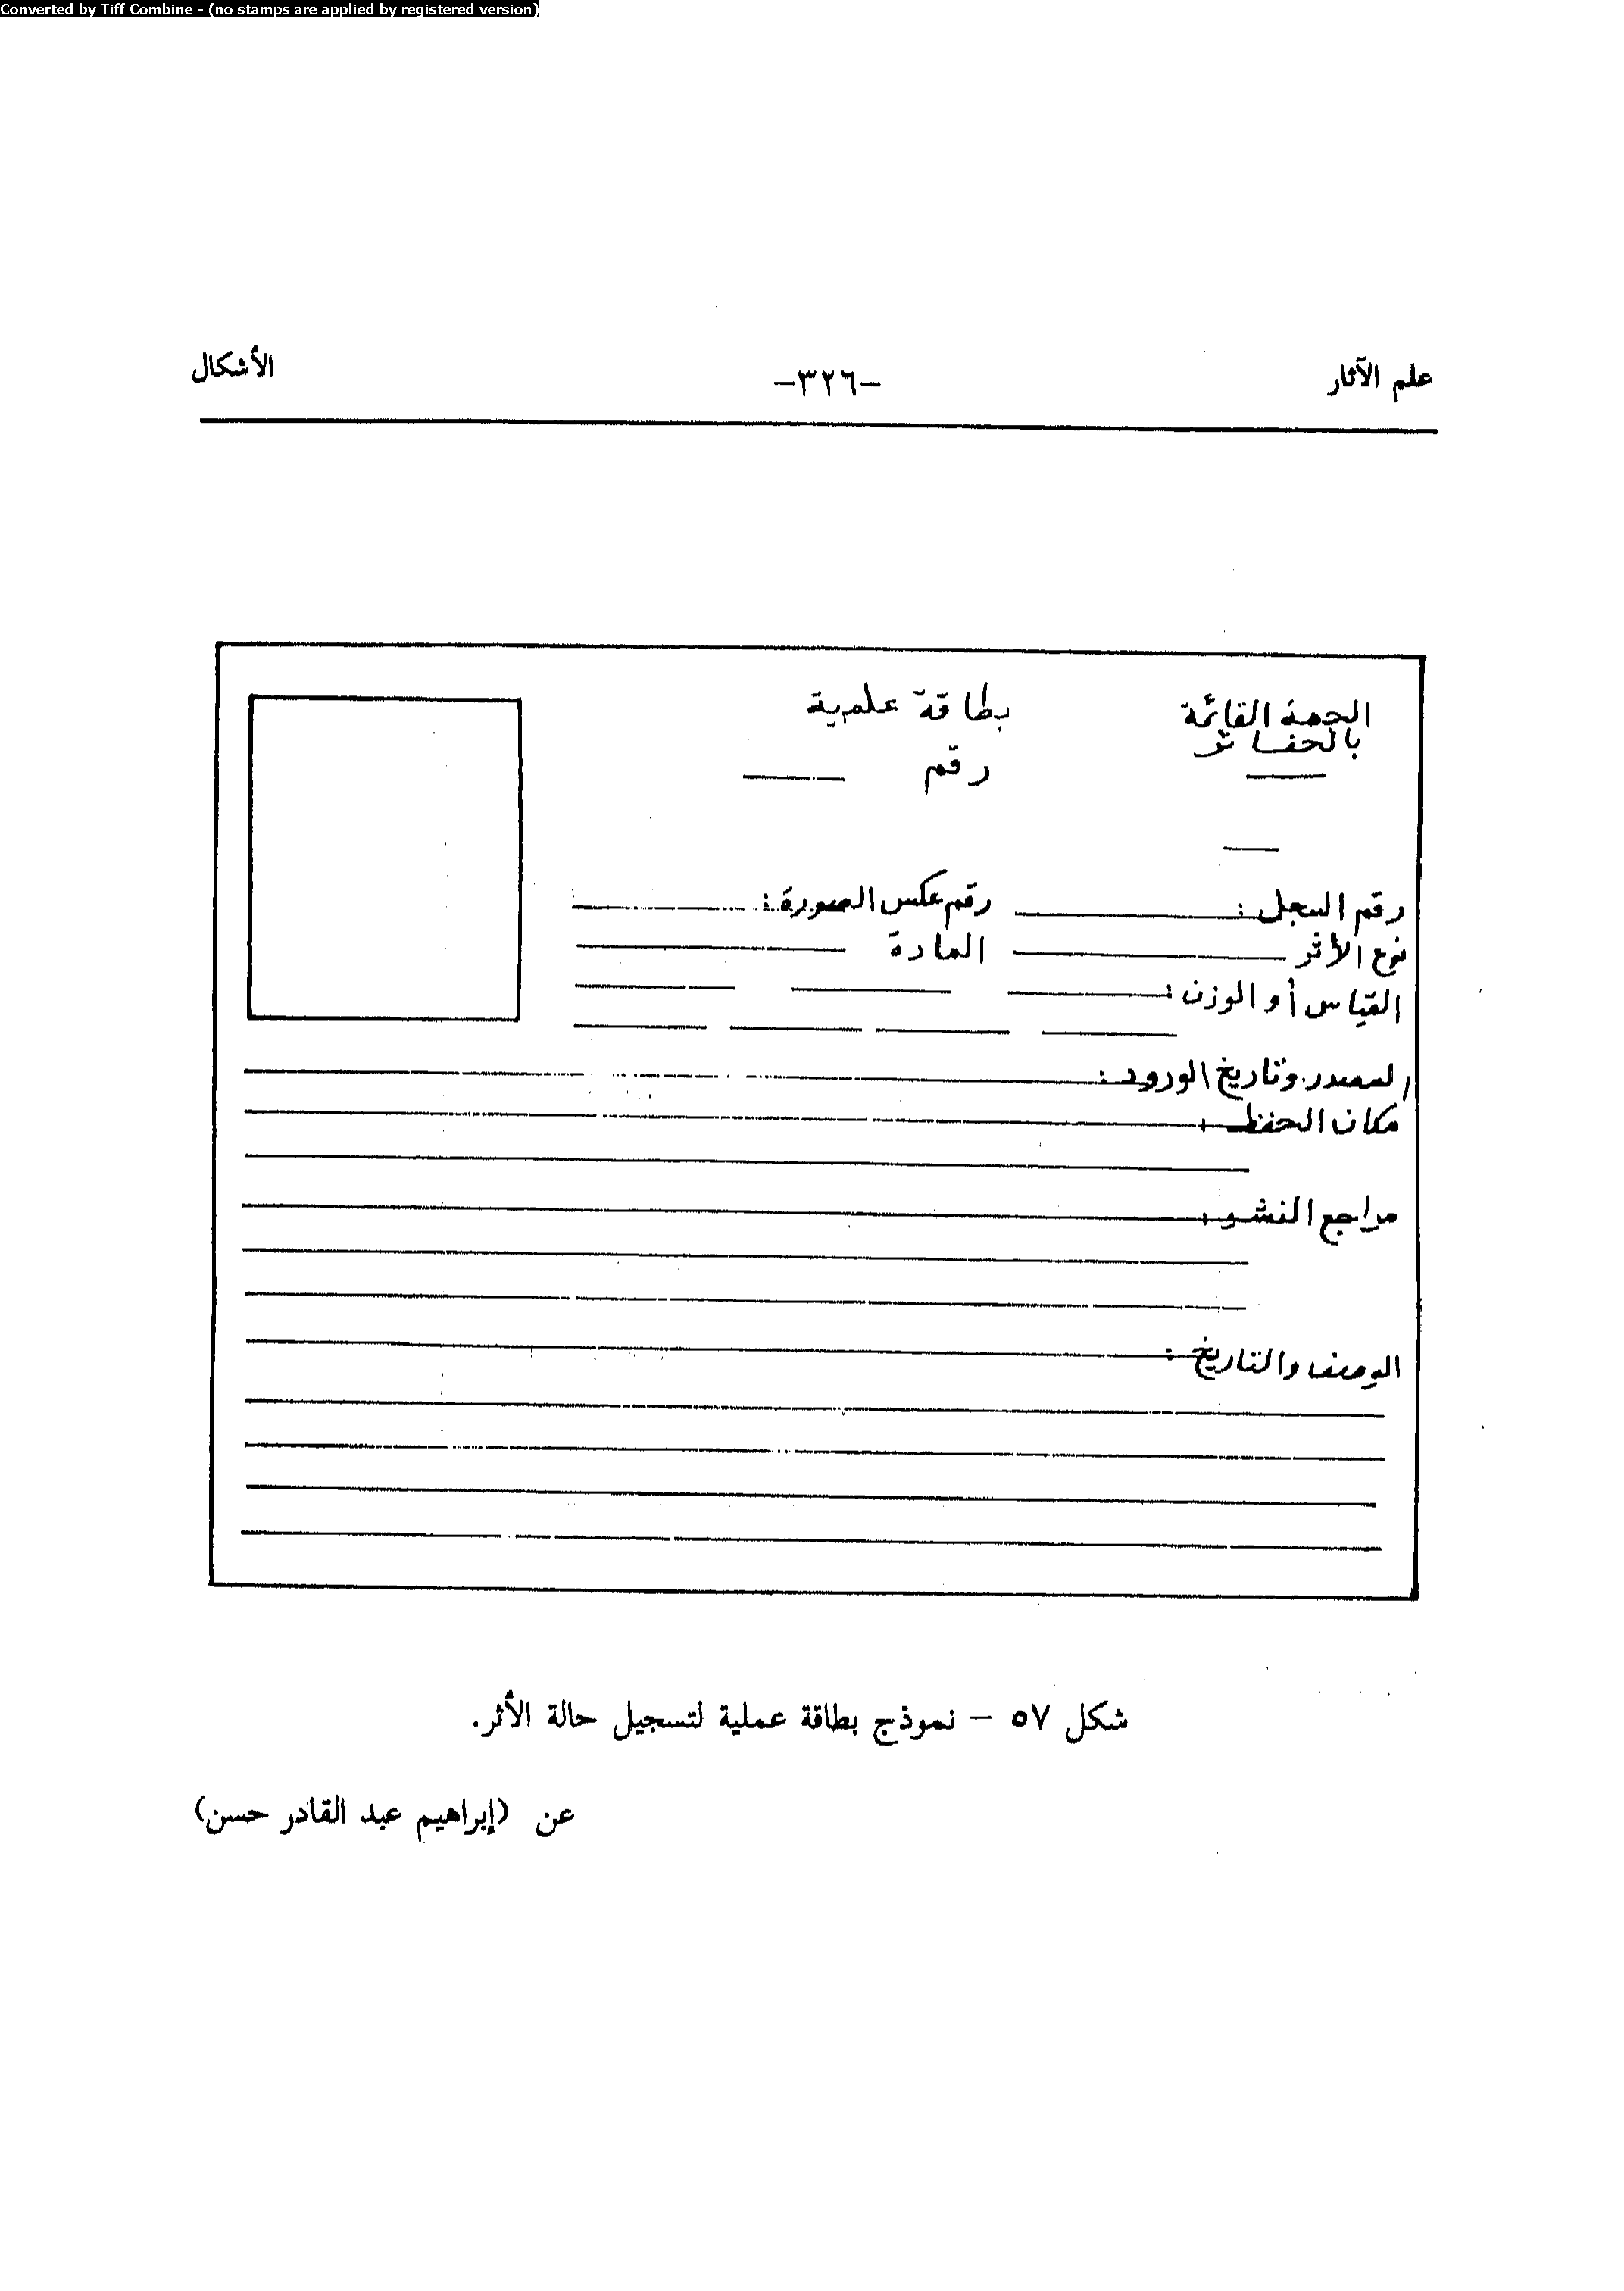 Converted by Tiff Combine - (no stamps are applied by registered version)
علم الآثار -٣٢٦- الأشكال
الجهة القائمة
بالحفائر
بطاقة علمية
رقم
رقم السجل : رقم عكس الصورة :
نوع الأثر المادة
القياس أو الوزن :
المصدر وتاريخ الورود :
مكان الحفظ :
مراجع النشر :
الوصف والتاريخ :
شكل ٥٧ – نموذج بطاقة عملية لتسجيل حالة الأثر.
عن (إبراهيم عبد القادر حسن)